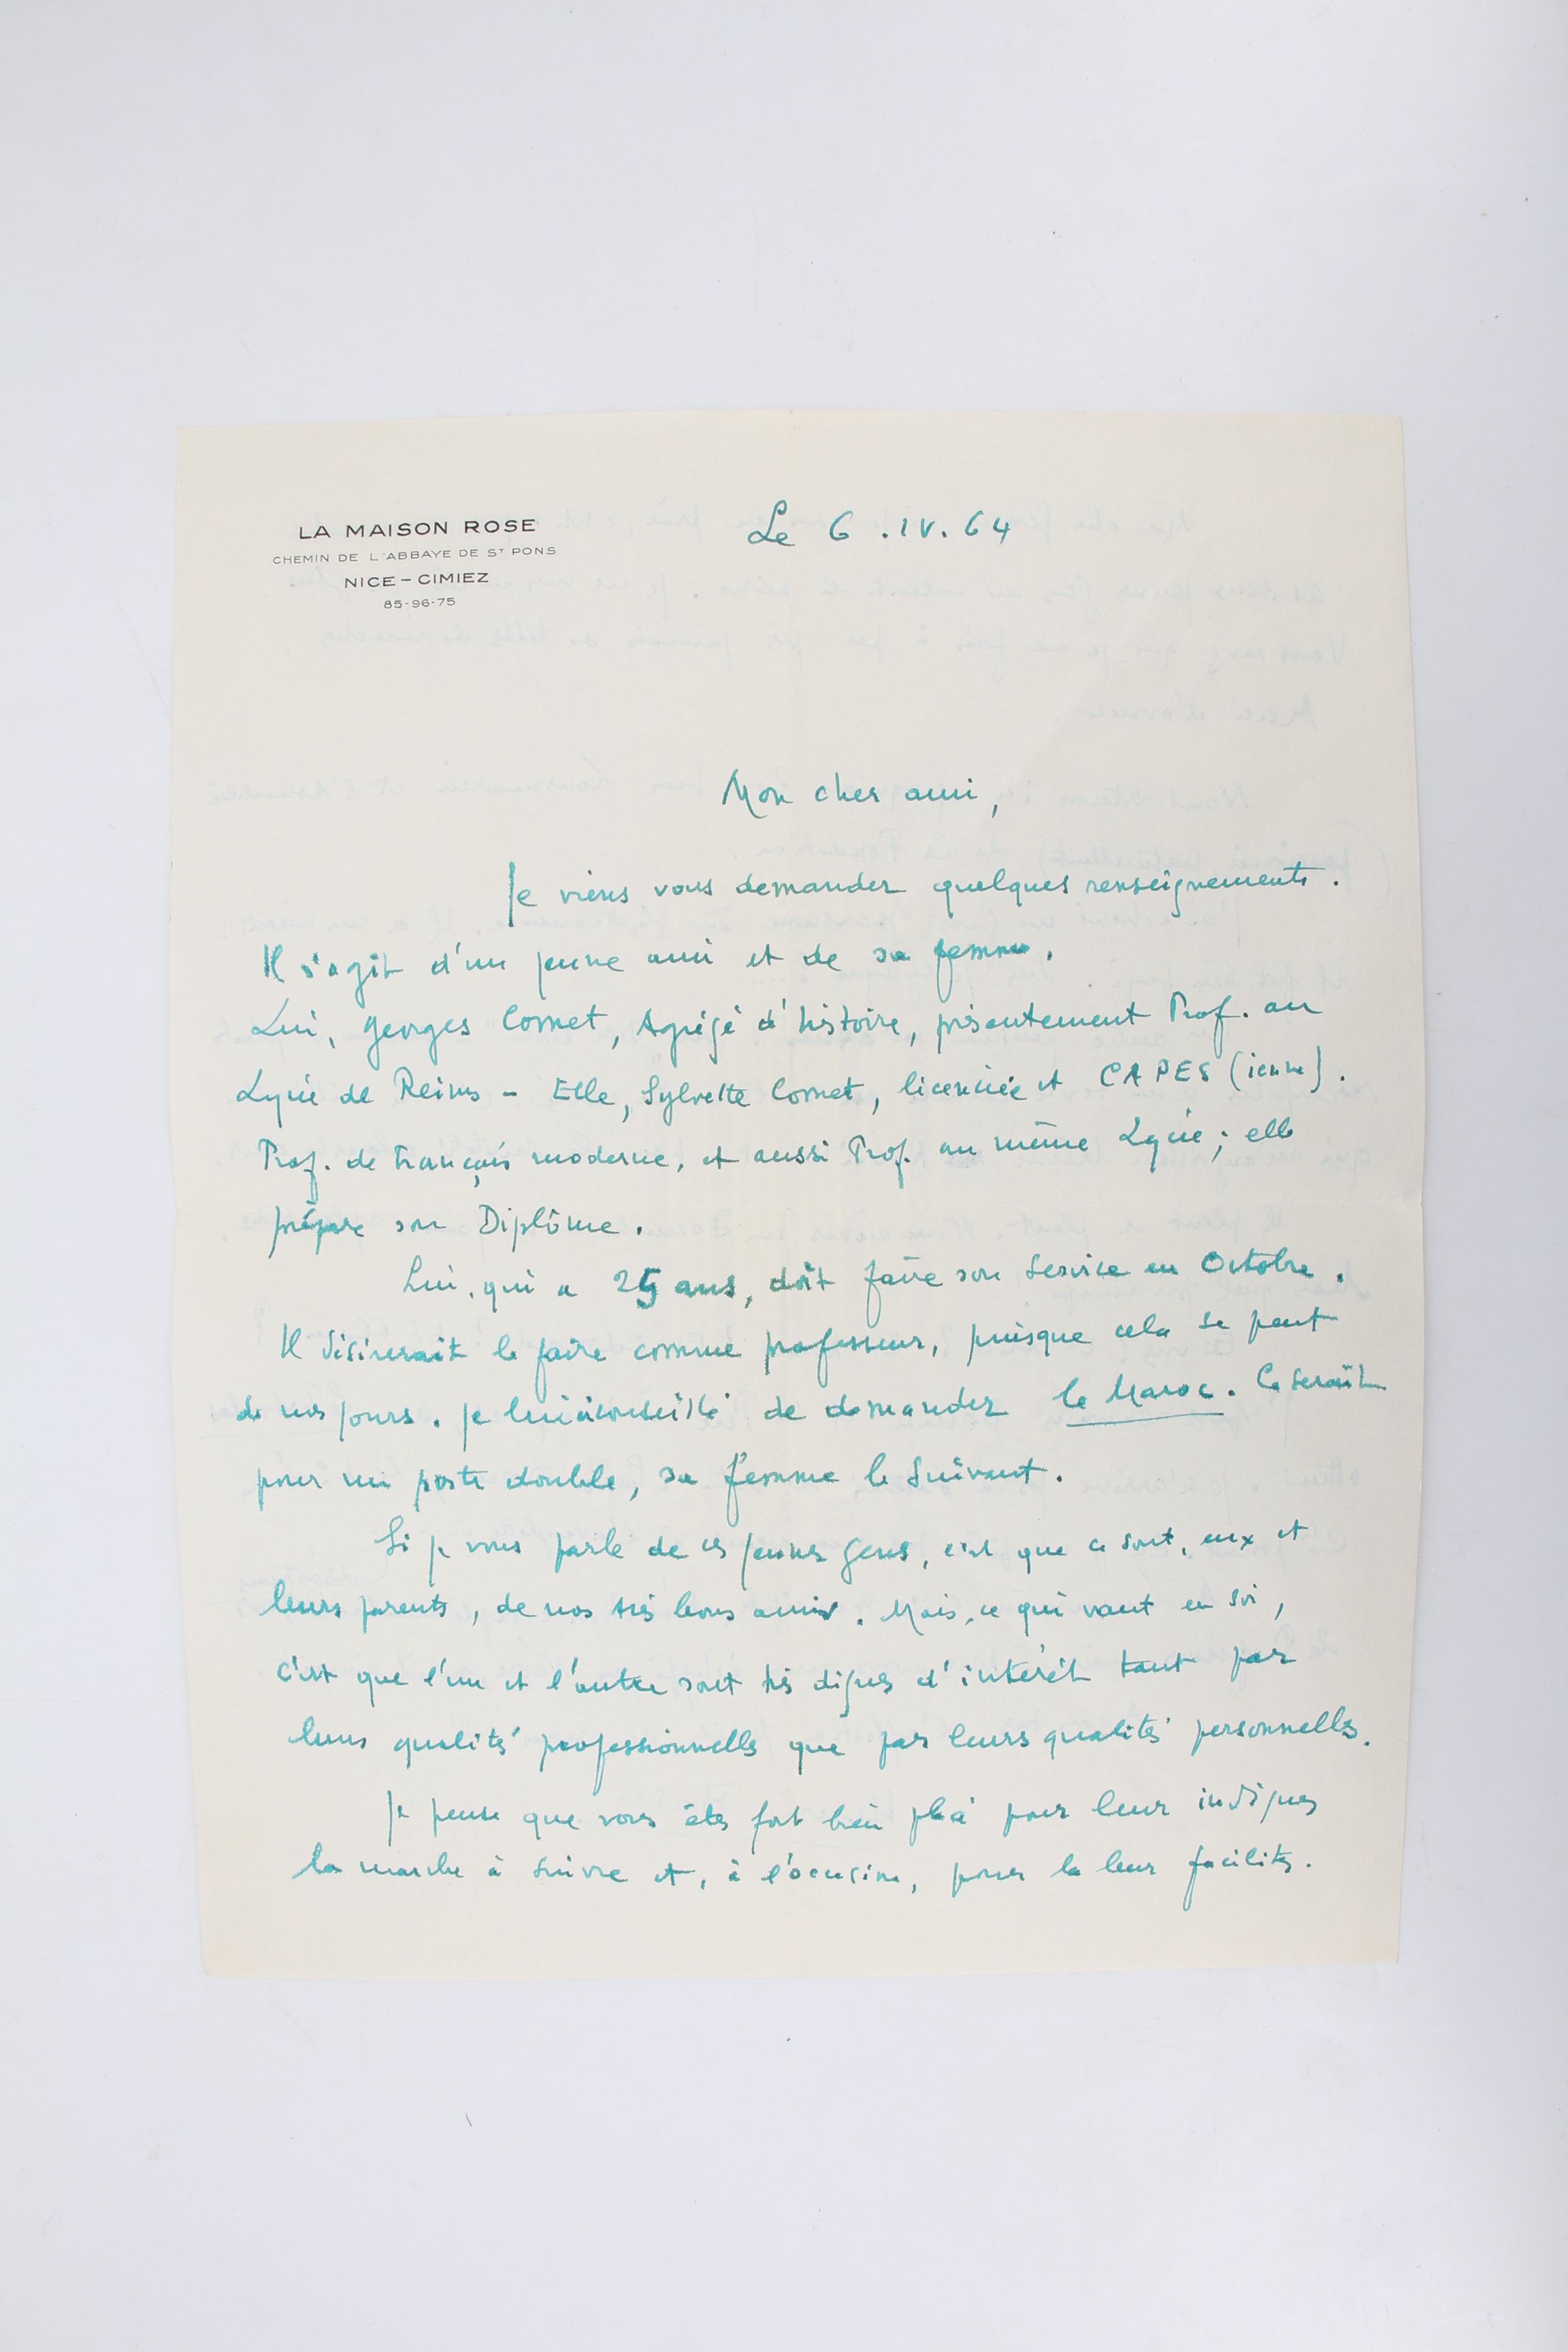 LA MAISON ROSE
CHEMIN DE L'ABBAYE DE ST PONS
NICE - CIMIEZ
85-96-75
Le 6.IV.64
Mon cher ami,
Je viens vous demander quelques renseignements.
Il s'agit d'un jeune ami et de sa femme.
Lui, Georges Comet, Agrégé d'histoire, présentement Prof. au
Lycée de Reims - Elle, Sylvette Comet, licenciée et CAPES (ienne).
Prof. de français moderne, et aussi Prof. au même Lycée; elle
prépare son Diplôme.
Lui, qui a 25 ans, doit faire son Service en Octobre.
Il désirerait le faire comme professeur, puisque cela se peut
de nos jours. Je lui ai conseillé de demander le Maroc. Ce serait
pour un poste double, sa femme le suivant.
Si je vous parle de ces jeunes gens, c'est que ce sont, eux et
leurs parents, de nos très bons amis. Mais, ce qui vaut en soi,
c'est que l'un et l'autre sont très dignes d'intérêt tant par
leurs qualités professionnelles que par leurs qualités personnelles.
Je pense que vous êtes fort bien placé pour leur indiquer
la marche à suivre et, à l'occasion, pour la leur faciliter.